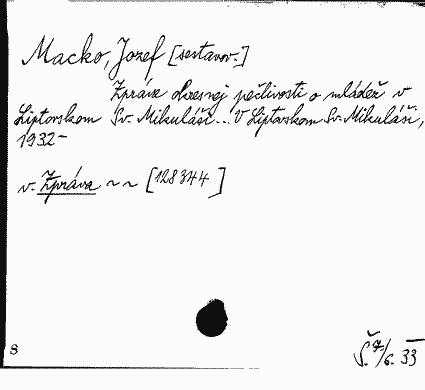 Macko, Jozef [sestavov.]
Zpráva okresnej pečlivosti o mládež v
Liptovskom Sv. Mikuláši... V Liptovskom Sv. Mikuláši,
1932-
v. Zpráva ~ ~ [128344]
8
Š. 7/6. 33